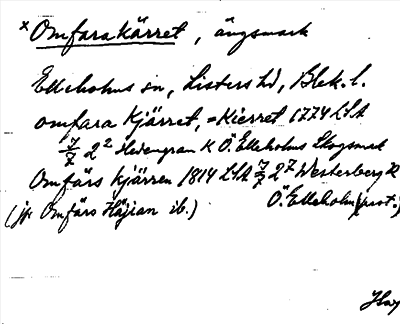 × Omfarakärret, ängsmark
Elleholms sn, Listers hd, Blek. l.
omfara Kjärret, =Kierret 1774 LSA
7/7 2² Hedengran K Ö. Elleholms Skogsmark
Omfärs kjärren 1814 LSA 7/7 2⁷ Westerberg R
(jfr Omfärs Häjian ib.) Ö. Elleholm